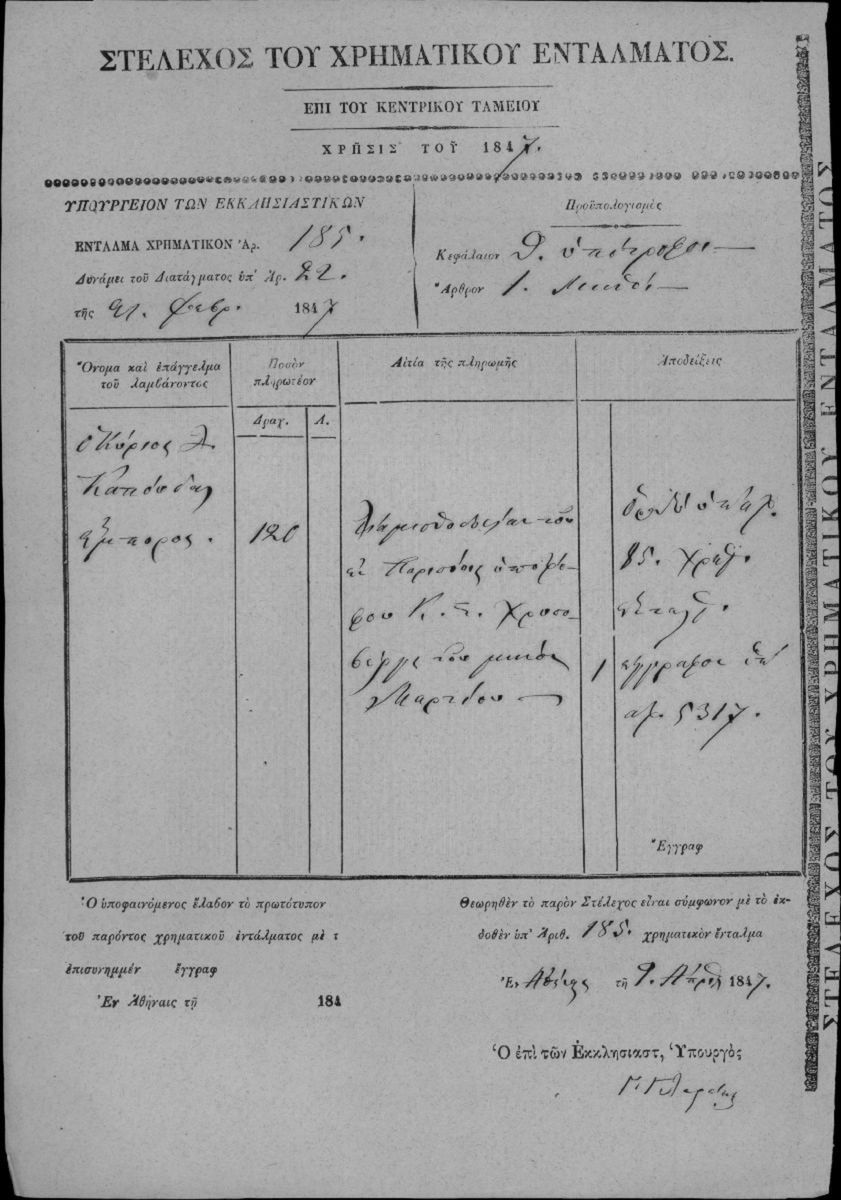 ΣΤΕΛΕΧΟΣ ΤΟΥ ΧΡΗΜΑΤΙΚΟΥ ΕΝΤΑΛΜΑΤΟΣ.
ΕΠΙ ΤΟΥ ΚΕΝΤΡΙΚΟΥ ΤΑΜΕΙΟΥ
ΧΡΗΣΙΣ ΤΟΥ 1847.
ΥΠΟΥΡΓΕΙΟΝ ΤΩΝ ΕΚΚΛΗΣΙΑΣΤΙΚΩΝ
ΕΝΤΑΛΜΑ ΧΡΗΜΑΤΙΚΟΝ Ἀρ. 185.
Δυνάμει τοῦ Διατάγματος ὑπ' Ἀρ. 22.
τῆς 21. Φεβρ. 1847
Προϋπολογισμὸς
Κεφάλαιον Θ. ὑπότροφοι
Ἄρθρον 1.
Ὄνομα καὶ ἐπάγγελμα
τοῦ λαμβάνοντος
Ποσὸν
πληρωτέον
Δραχ. Λ.
Αἰτία τῆς πληρωμῆς
Ἀποδείξεις
ὁ Κύριος
ἔμπορος.
120
τοῦ
ἐν Παρισίοις ὑποτρό-
φου Κ. Χρυσο-
βέργη τοῦ μηνὸς
Μαρτίου
85.
1 ἔγγραφον ὑπ'
ἀρ. 5317.
Ἔγγραφ
Ὁ ὑποφαινόμενος ἔλαβον τὸ πρωτότυπον
τοῦ παρόντος χρηματικοῦ ἐντάλματος μὲ τ
ἐπισυνημμέν ἔγγραφ
Ἐν Ἀθήναις τῇ 184
Θεωρηθὲν τὸ παρὸν Στέλεχος εἶναι σύμφωνον μὲ τὸ ἐκ-
δοθὲν ὑπ' Ἀριθ. 185. χρηματικὸν ἔνταλμα
Ἐν Ἀθήναις τῇ 9. Ἀπριλ 1847.
Ὁ ἐπὶ τῶν Ἐκκλησιαστ, Ὑπουργὸς
ΣΤΕΛΕΧΟΣ ΤΟΥ ΧΡΗΜΑΤΙΚΟΥ ΕΝΤΑΛΜΑΤΟΣ